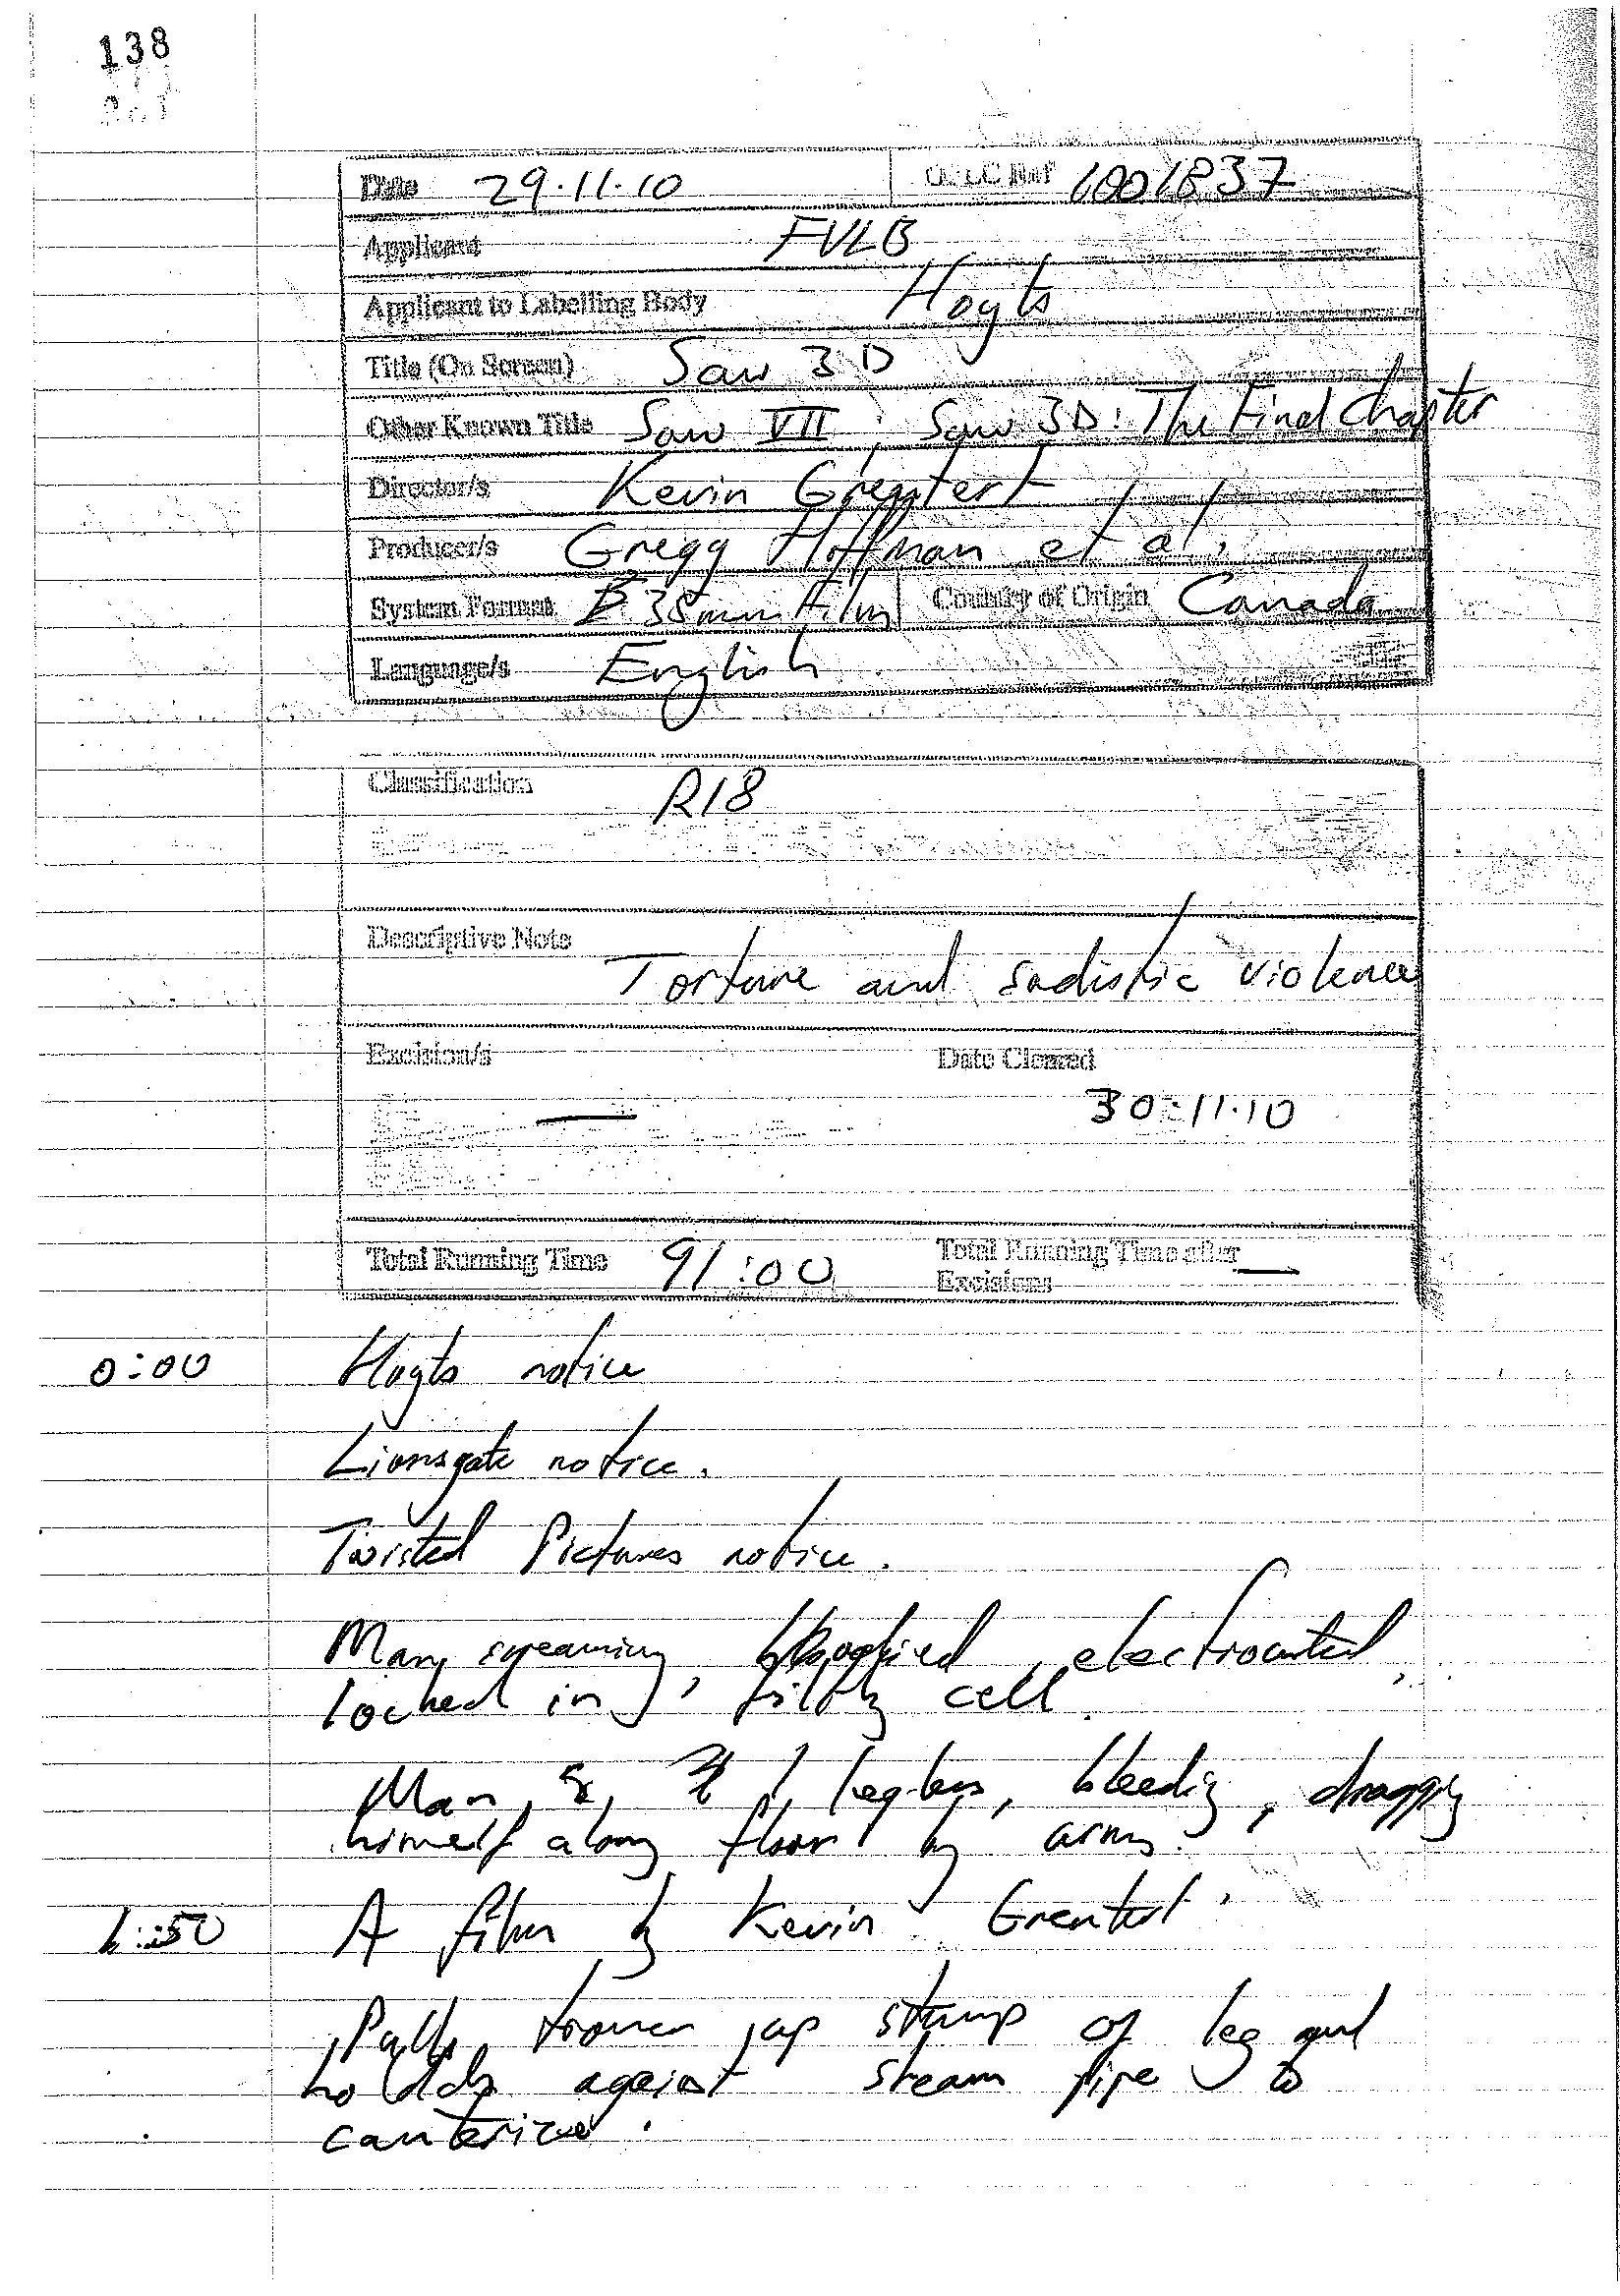 138
Date 29.11.10 OFLC Ref 1001837
Applicant FVLB
Applicant to Labelling Body Hoyts
Title (On Screen) Saw 3D
Other Known Title Saw VII ; Saw 3D: The Final Chapter
Director/s Kevin Greutert
Producer/s Gregg Hoffman et al.
System Format 35mm film Country of Origin Canada
Language/s English
Classification R18
Descriptive Note
Torture and sadistic violence
Excision/s Date Cleared
— 30.11.10
Total Running Time 91:00 Total Running Time after
Excisions —
0:00 Hoyts notice
Lionsgate notice.
Twisted Pictures notice.
Man screaming, bloodied, electrocuted,
locked in filthy cell.
Man, legless, bleeding, dragging
himself along floor by arms.
1:50 A film by Kevin Greutert.
Pulls trouser up stump of leg and
holds against steam pipe to
cauterize.